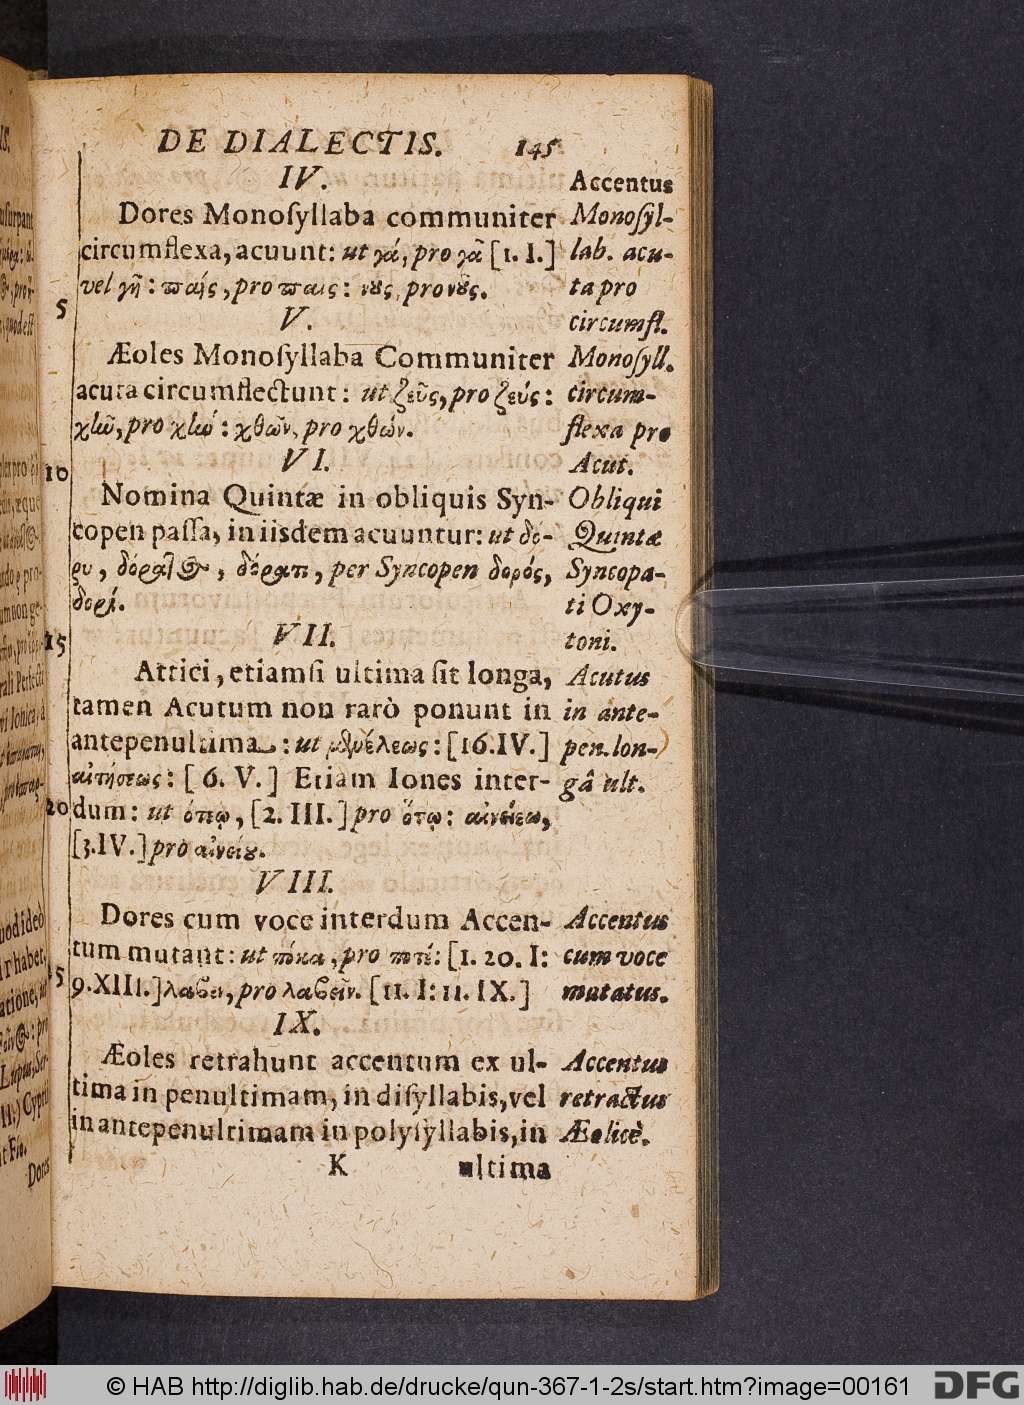 DE DIALECTIS. 145
IV.
Dores Monoſyllaba communiter
circumflexa, acuunt: ut γά, pro γᾶ [1. I.]
vel γῆ: παΐς, pro παῖς: νȣς, pro νȣ͂ς.
V.
Æoles Monoſyllaba Communiter
acuta circumflectunt: ut ζεῦς, pro ζεύς:
χθῶν, pro χθών.
VI.
Nomina Quintæ in obliquis Syn-
copen paſſa, in iisdem acuuntur: ut δό-
ρυ, δόρατος, δόρατι, per Syncopen δορός,
δορί.
VII.
Attici, etiamſi ultima ſit longa,
tamen Acutum non rarò ponunt in
antepenultima: ut [16.IV.]
[6. V.] Etiam Iones inter-
dum: ut ὁτῳ, [2. III.] pro ὅτῳ:
[3.IV.] pro αἰνείȣ.
VIII.
Dores cum voce interdum Accen-
tum mutant: ut πόκα, pro ποτέ: [1. 20. I:
9.XIII.] λαβεν, pro λαβεῖν. [11. I: 11. IX.]
IX.
Æoles retrahunt accentum ex ul-
tima in penultimam, in diſyllabis, vel
in antepenultimam in polyſyllabis, in
K ultima
Accentus
Monoſyl-
lab. acu-
ta pro
circumfl.
Monoſyll.
circum-
flexa pro
Acut.
Obliqui
Quintæ
Syncopa-
ti Oxy-
toni.
Acutus
in ante-
pen. lon-
gâ ult.
Accentus
cum voce
mutatus.
Accentus
retractus
Æolicè.
5
10
15
20
© HAB http://diglib.hab.de/drucke/qun-367-1-2s/start.htm?image=00161
DFG